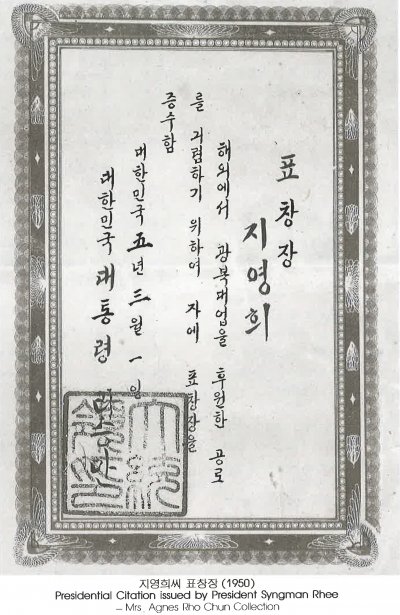 표창장
지영희
해외에서 광복대업을 후원한 공로
를 기렴하기 위하여 자에 표창장을
증수함
대한민국 五년 三월 一일
대한민국 대통령 리승만
지영희씨 표창장 (1950)
Presidential Citation issued by President Syngman Rhee
– Mrs. Agnes Rho Chun Collection